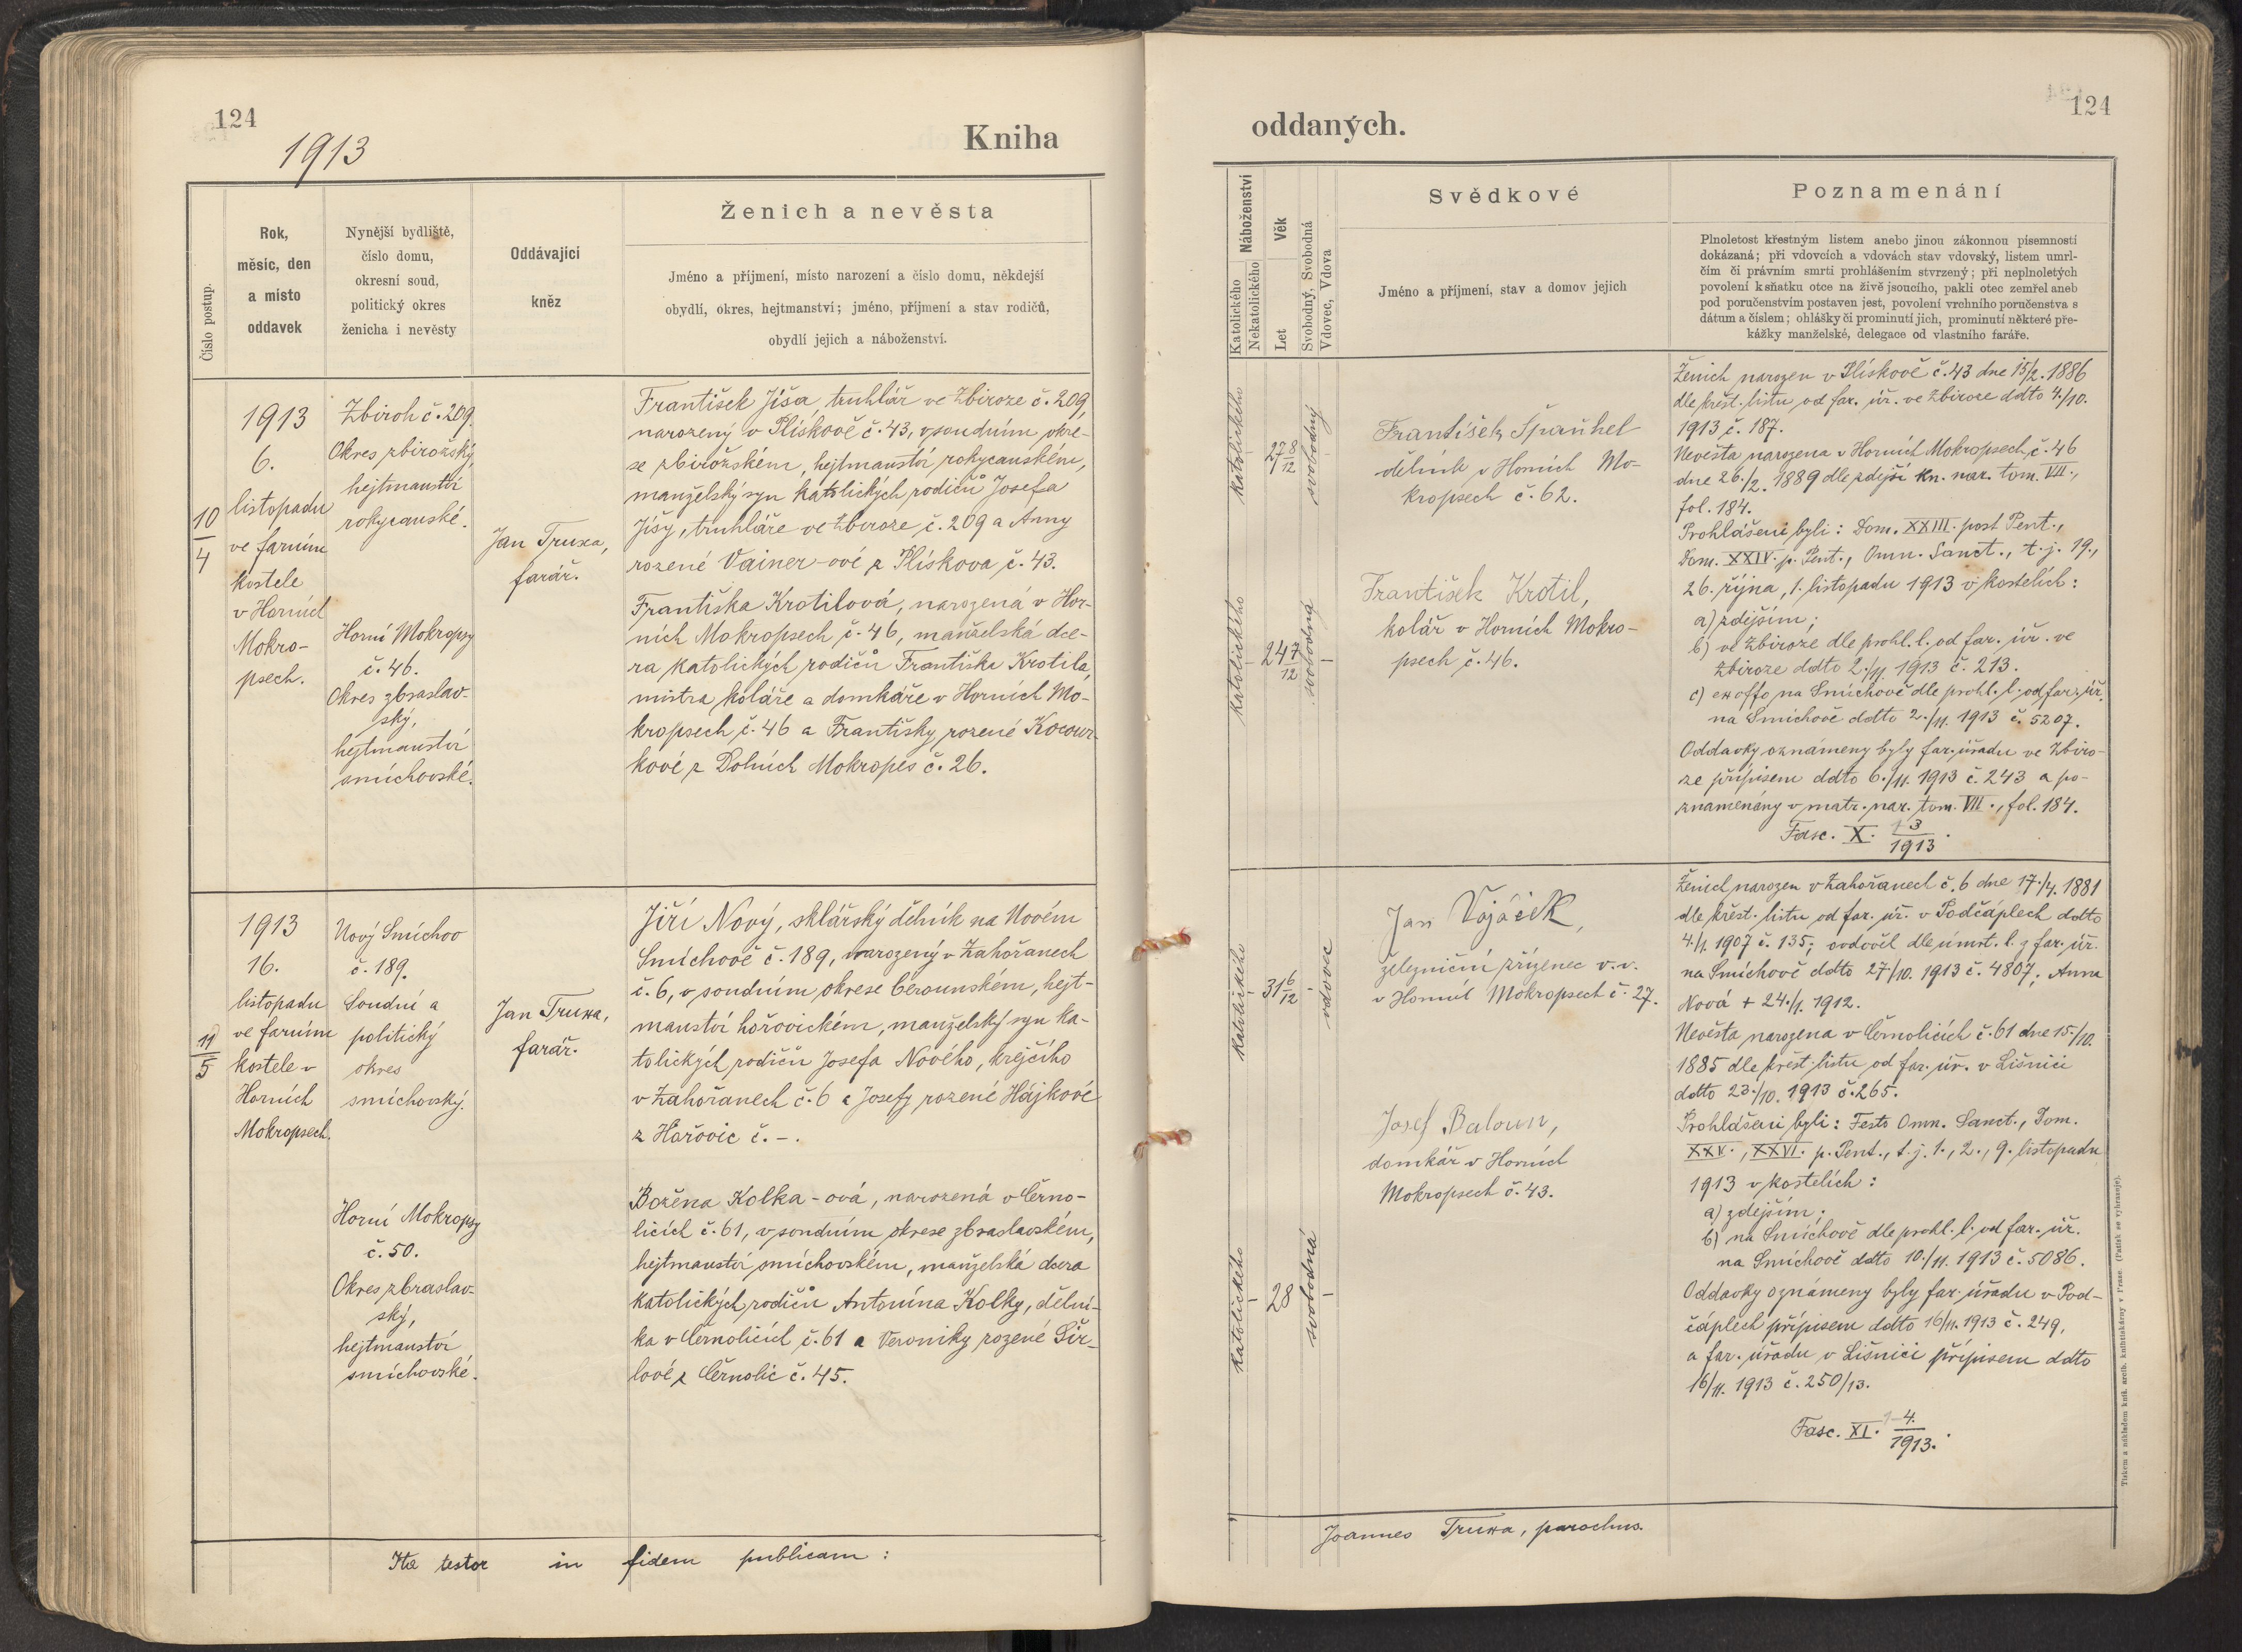 124
1913
Kniha
Číslo postup.
Rok,
měsíc, den
a místo
oddavek
Nynější bydliště,
číslo domu,
okresní soud,
politický okres
ženicha i nevěsty
Oddávající
kněz
Ženich a nevěsta
Jméno a příjmení, místo narození a číslo domu, někdejší
obydlí, okres, hejtmanství; jméno, příjmení a stav rodičů,
obydlí jejich a náboženství.
10
4
1913
6.
listopadu
ve farním
kostele
v Horních
Mokro-
psech.
Zbiroh č. 209.
Okres zbirožský,
hejtmanství
rokycanské.
Horní Mokropsy
č. 46.
Okres zbraslav-
ský,
hejtmanství
smíchovské.
Jan Truxa,
farář.
František Jíša, truhlář ve Zbiroze č. 209,
narozený v Plískově č. 43, v soudním okre-
se zbirožském, hejtmanství rokycanském,
manželský syn katolických rodičů Josefa
Jíšy, truhláře ve Zbiroze č. 209 a Anny
rozené Vainer-ové z Plískova č. 43.
Františka Krotilová, narozená v Hor-
ních Mokropsech č. 46, manželská dce-
ra katolických rodičů Františka Krotila,
mistra koláře a domkáře v Horních Mo-
kropsech č. 46 a Františky rozené Kocour-
kové z Dolních Mokropes č. 26.
11
5
1913
16.
listopadu
ve farním
kostele v
Horních
Mokropsech.
Nový Smíchov
č. 189.
Soudní a
politický
okres
smíchovský.
Horní Mokropsy
č. 50.
Okres zbraslav-
ský,
hejtmanství
smíchovské.
Jan Truxa,
farář.
Jiří Nový, sklářský dělník na Novém
Smíchově č. 189, narozený v Zahořanech
č. 6, v soudním okrese berounském, hejt-
manství hořovickém, manželský syn ka-
tolických rodičů Josefa Nového, krejčího
v Zahořanech č. 6 a Josefy rozené Hájkové
z Hořovic č. -.
Božena Kolka-ová, narozená v Černo-
licích č. 61, v soudním okrese zbraslavském,
hejtmanství smíchovském, manželská dcera
katolických rodičů Antonína Kolky, dělní-
ka v Černolicích č. 61 a Veroniky rozené Šír-
lové z Černolic č. 45.
Ita testor in fidem publicam :
oddaných.
124
Náboženství
Katolického
Nekatolického
Věk
Let
Svobodný, Svobodná
Vdovec, Vdova
Svědkové
Jméno a příjmení, stav a domov jejich
Poznamenání
Plnoletost křestným listem anebo jinou zákonnou písemností
dokázaná; při vdovcích a vdovách stav vdovský, listem umrl-
čím či právním smrti prohlášením stvrzený; při neplnoletých
povolení k sňatku otce na živě jsoucího, pakli otec zemřel aneb
pod poručenstvím postaven jest, povolení vrchního poručenstva s
dátum a číslem; ohlášky či prominutí jich, prominutí některé pře-
kážky manželské, delegace od vlastního faráře.
katolického
27 8/12
svobodný
katolického
24 7/12
svobodná
František Španhel
dělník v Horních Mo-
kropsech č. 62.
František Krotil,
kolář v Horních Mokro-
psech č. 46.
Ženich narozen v Plískově č. 43 dne 15/2. 1886
dle křest. listu od far. úř. ve Zbiroze ddto 4./10.
1913 č. 187.
Nevěsta narozena v Horních Mokropsech č. 46
dne 26./2. 1889 dle zdejší kn. nar. tom. VII.,
fol. 184.
Prohlášeni byli: Dom. XXIII. post Pent.,
Dom. XXIV. p. Pent., Omn. Sanct., t. j. 19.,
26. října, 1. listopadu 1913 v kostelích:
a) zdejším;
b) ve Zbiroze dle prohl. l. od far. úř. ve
Zbiroze ddto 2./11. 1913 č. 213.
c) ex offo na Smíchově dle prohl. l. od far. úř.
na Smíchově ddto 2./11. 1913 č. 5207.
Oddavky oznámeny byly far. úřadu ve Zbiro-
ze přípisem ddto 6./11. 1913 č. 243 a po-
znamenány v matr. nar. tom. VII., fol. 184.
Fasc. X. 13/1913.
katolického
31 6/12
vdovec
katolického
28
svobodná
Jan Vojáček,
železniční zřízenec v. v.
v Horních Mokropsech č. 27.
Josef Baloun,
domkář v Horních
Mokropsech č. 43.
Ženich narozen v Zahořanech č. 6 dne 17./4. 1881
dle křest. listu od far. úř. v Podčáplech ddto
4./1. 1907 č. 135; ovdověl dle úmrt. l. z far. úř.
na Smíchově ddto 27/10. 1913 č. 4807; Anna
Nová + 24./1. 1912.
Nevěsta narozena v Černolicích č. 61 dne 15./10.
1885 dle křest. listu od far. úř. v Líšnici
ddto 23./10. 1913 č. 265.
Prohlášeni byli: Festo Omn. Sanct., Dom.
XXV., XXVI. p. Pent., t. j. 1., 2., 9. listopadu
1913 v kostelích:
a) zdejším;
b) na Smíchově dle prohl. l. od far. úř.
na Smíchově ddto 10./11. 1913 č. 5086.
Oddavky oznámeny byly far. úřadu v Pod-
čáplech přípisem ddto 16/11. 1913 č. 249,
a far. úřadu v Líšnici přípisem ddto
16/11. 1913 č. 250/13.
Fasc. XI. 1-4./1913.
Joannes Truxa, parochus.
Tiskem a nákladem kníž. arcib. knihtiskárny v Praze. (Patisk se vyhrazuje).